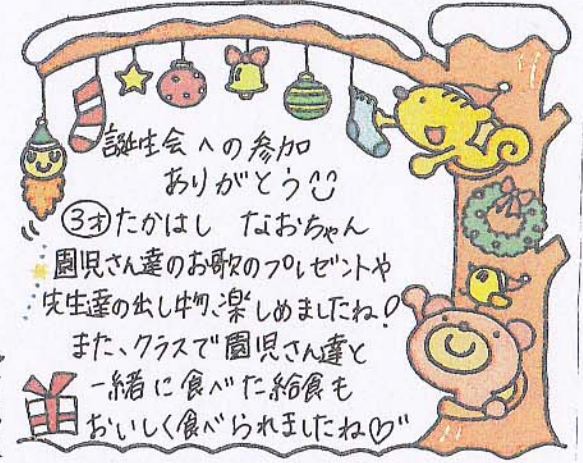 誕生会への参加
ありがとう
③才 たかはし なおちゃん
園児さん達のお歌のプレゼントや
先生達の出し物、楽しめましたね!
また、クラスで園児さん達と
一緒に食べた給食も
おいしく食べられましたね♡"